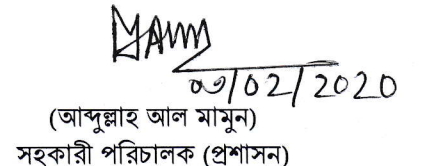 ০৩/02/2020
(আব্দুল্লাহ আল মামুন)
সহকারী পরিচালক (প্রশাসন)